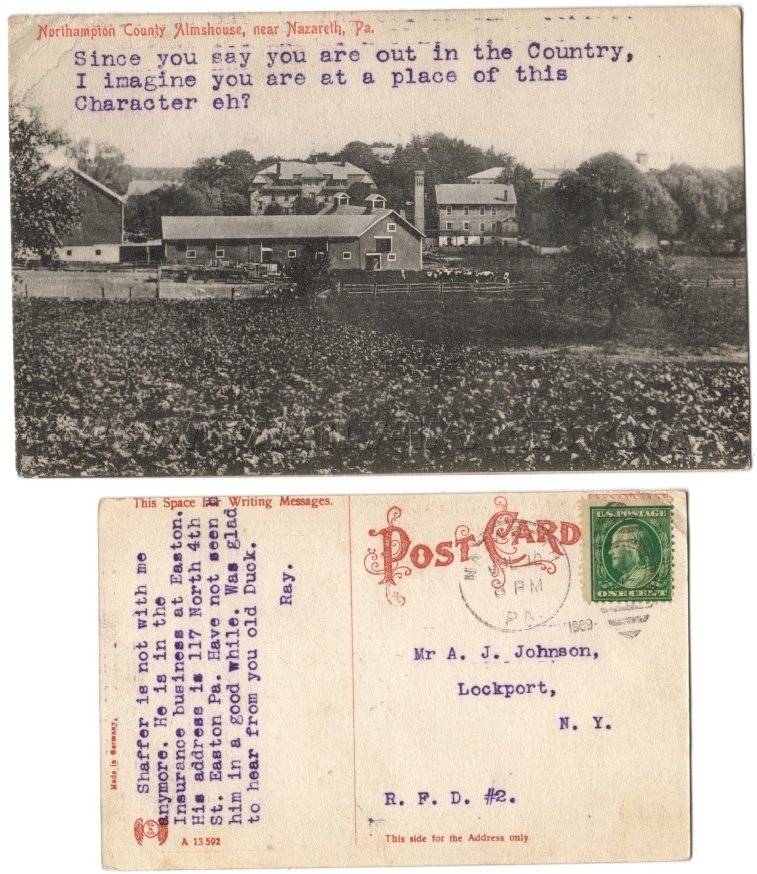 Northampton County Almshouse, near Nazareth, Pa.
Since you say you are out in the Country,
I imagine you are at a place of this
Character eh?
This Space For Writing Messages.
Shaffer is not with me
anymore. He is in the
Insurance business at Easton.
His address is 117 North 4th
St. Easton Pa. Have not seen
him in a good while. Was glad
to hear from you old Duck.
Ray.
Made in Germany.
A 13592
POST CARD
U.S. POSTAGE
ONE CENT
PM
PA
Mr A. J. Johnson,
Lockport,
N. Y.
R. F. D. #2.
This side for the Address only.